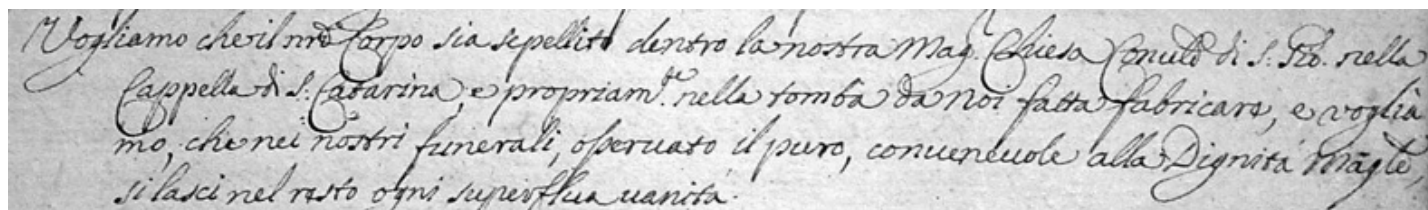 Vogliamo che il nro Corpo sia sepellito dentro la nostra Mag. Chiesa Conule di S. Gio. nella
Cappella di S. Catarina, e propriamte. nella tomba da Noi fatta fabricare, e voglia
mo, che nei nostri funerali, osseruato il puro, conueneuole alla Dignità Magle,
si lasci nel resto ogni superflua uanità.